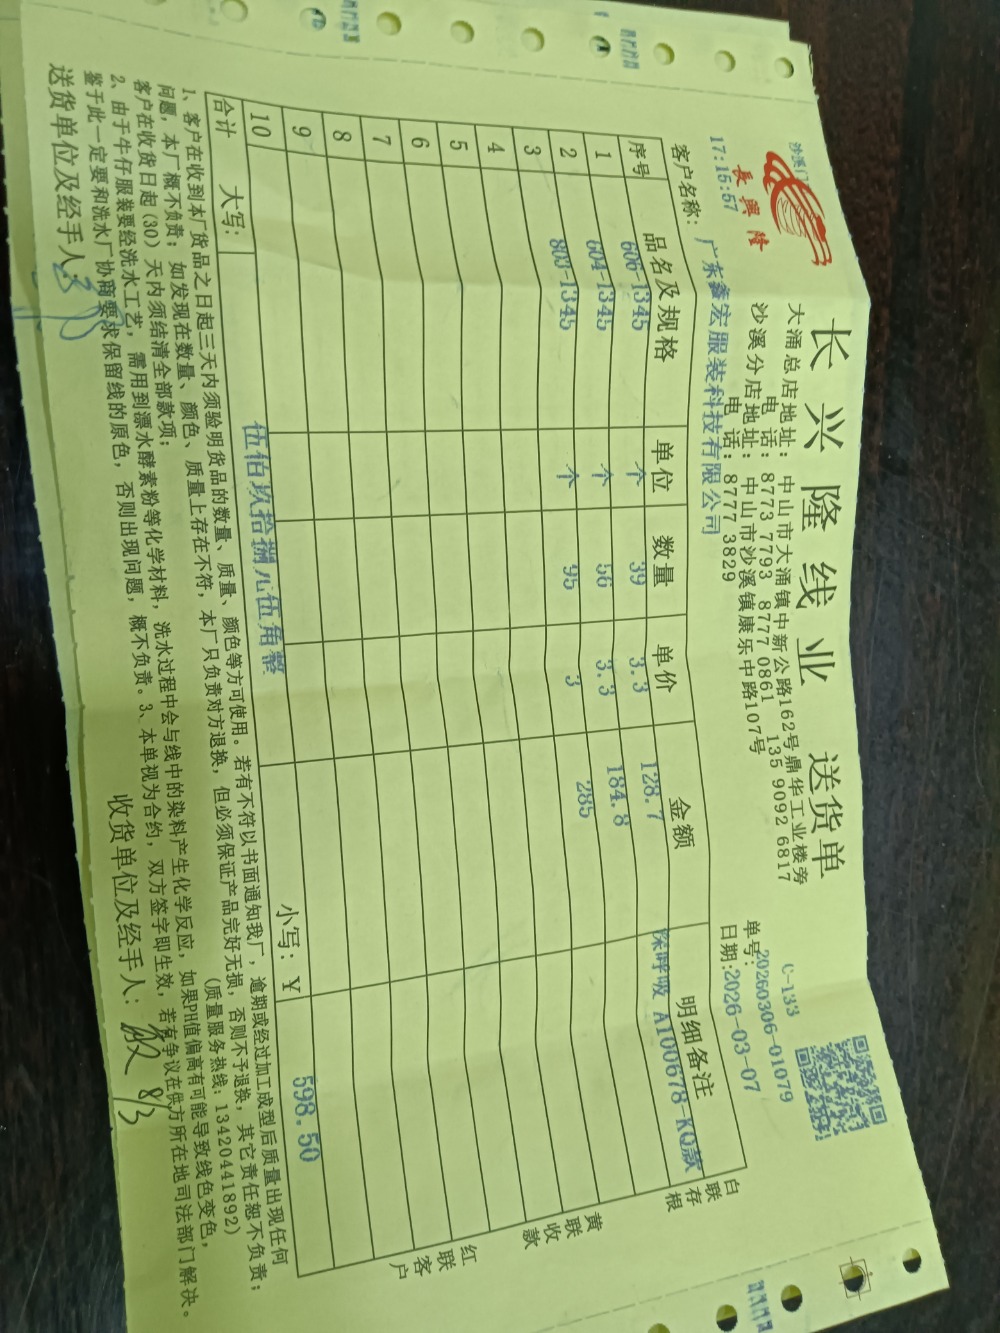 長興隆
长兴隆线业 送货单
大涌总店地址：中山市大涌镇中新公路162号鼎华工业楼旁
电话：8773 7793 8777 0861 135 9092 6817
沙溪分店地址：中山市沙溪镇康乐中路107号
电话：8777 3829
C-133
单号：20260306-01079
17:15:57
日期：2026-03-07
客户名称：广东鑫宏服装科技有限公司
序号 品名及规格 单位 数量 单价 金额 明细备注
606-1345 个 39 3.3 128.7 深呼吸 A100678-KQ款
1 604-1345 个 56 3.3 184.8
2 803-1345 个 95 3 285
3
4
5
6
7
8
9
10
合计 大写： 伍佰玖拾捌元伍角整 小写：￥ 598.50
白联存根
黄联收款
红联客户
1、客户在收到本厂货品之日起三天内须验明货品的数量、质量、颜色等方可使用。若有不符以书面通知我厂，逾期或经过加工成型后质量出现任何
问题，本厂概不负责；如发现在数量、颜色、质量上存在不符，本厂只负责对方退换，但必须保证产品完好无损，否则不予退换，其它责任恕不负责；
客户在收货日起(30)天内须结清全部款项； (质量服务热线：13420441892)
2、由于牛仔服装要经洗水工艺，需用到漂水酵素粉等化学材料，洗水过程中会与线中的染料产生化学反应，如果PH值偏高有可能导致线色变色，
鉴于此一定要和洗水厂协商要求保留线的原色，否则出现问题，概不负责。3、本单视为合约，双方签字即生效，若有争议在供方所在地司法部门解决。
送货单位及经手人： 收货单位及经手人： 8/3